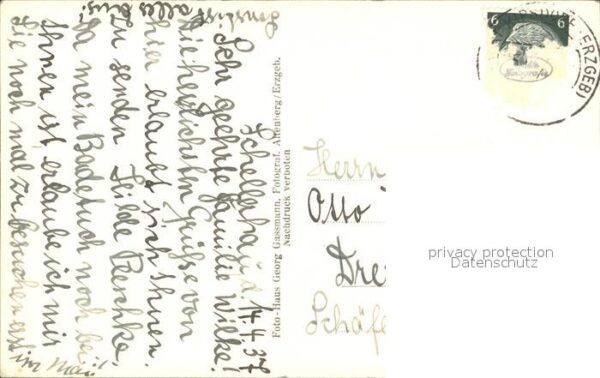 Schellerhau d. 14.4.37
Sehr geehrte Familie Wilke!
Die herzlichsten Grüße von
hier erlaubt sich Ihnen
zu senden Hilde Peschke,
da mein Badetuch noch bei
Ihnen ist erlaube ich mir
Sie noch mal zu besuchen erst im Mai
Sonst ist
alles aus!
Foto-Haus Georg Gassmann, Fotograf, Altenberg/Erzgeb.
Nachdruck verboten
6 6
ERZGEB)
Herrn
Otto
Dre
Schäfe
privacy protection
Datenschutz